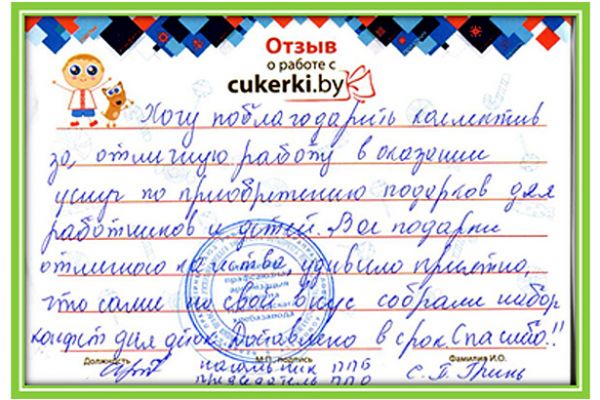 Отзыв
о работе с
cukerki.by
Хочу поблагодарить коллектив
за, отличную работу в оказании
услуг по приобритению подарков для
работников и детей. Все подарки
отличного качества, удивило приятно,
что сами на свой вкус собрали набор
конфет для деток. Доставлено в срок. Спасибо!!
Должность М.П. подпись Фамилия И.О.
начальник ППБ С.П. Гринь
председатель ППО